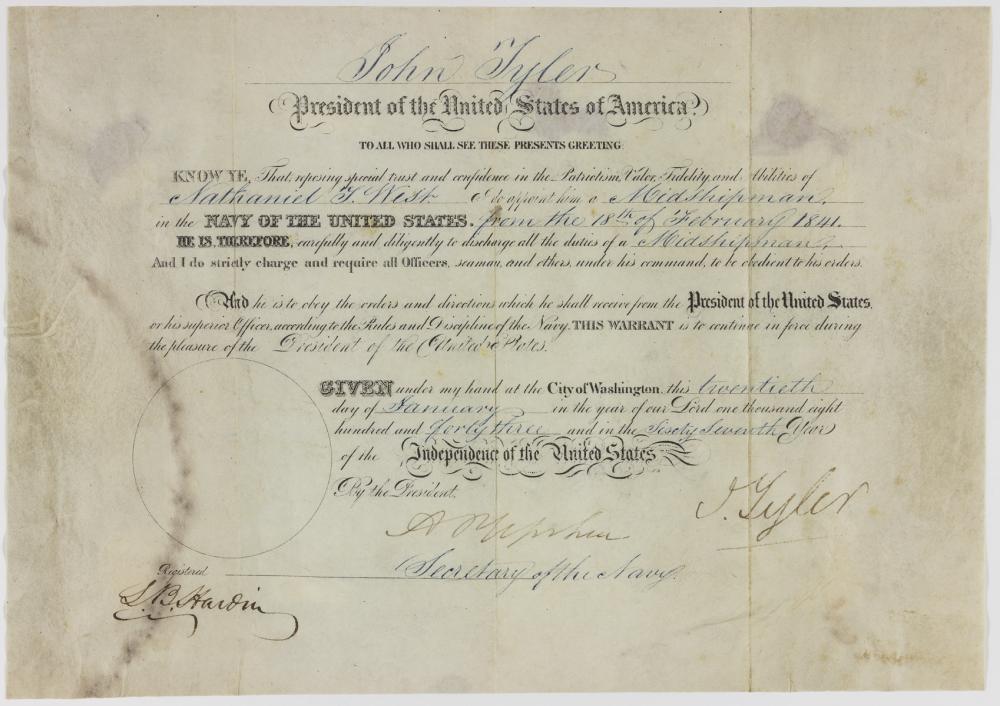 John Tyler
President of the United States of America.
TO ALL WHO SHALL SEE THESE PRESENTS GREETING:
KNOW YE, That reposing special trust and confidence in the Patriotism, Valor, Fidelity, and Abilities of
Nathaniel T. West I do appoint him a Midshipman,
in the NAVY OF THE UNITED STATES. from the 18th of February 1841.
HE IS, THEREFORE, carefully and diligently to discharge all the duties of a Midshipman,
And I do strictly charge and require all Officers, seaman, and others, under his command, to be obedient to his orders.
And he is to obey the orders and directions which he shall receive from the President of the United States,
or his superior Officer, according to the Rules and Discipline of the Navy. THIS WARRANT is to continue in force during
the pleasure of the President of the United States.
GIVEN under my hand at the City of Washington, this twentieth
day of January in the year of our Lord one thousand eight
hundred and forty three and in the Sixty Seventh Year
of the Independence of the United States.
By the President,
J. Tyler
A P Upshur
Secretary of the Navy.
Registered
L. B. Hardin